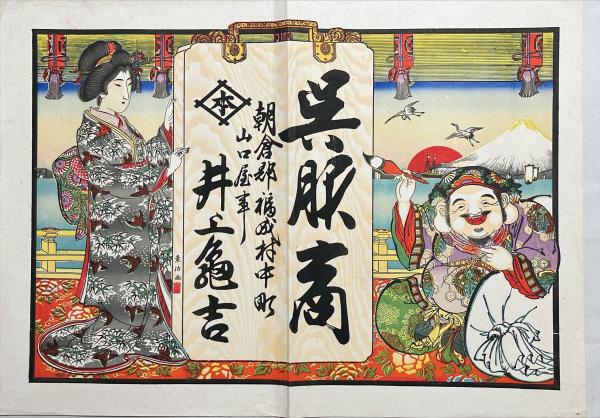 呉服商
朝倉郡福成村中町
山口屋事
本
井上亀吉